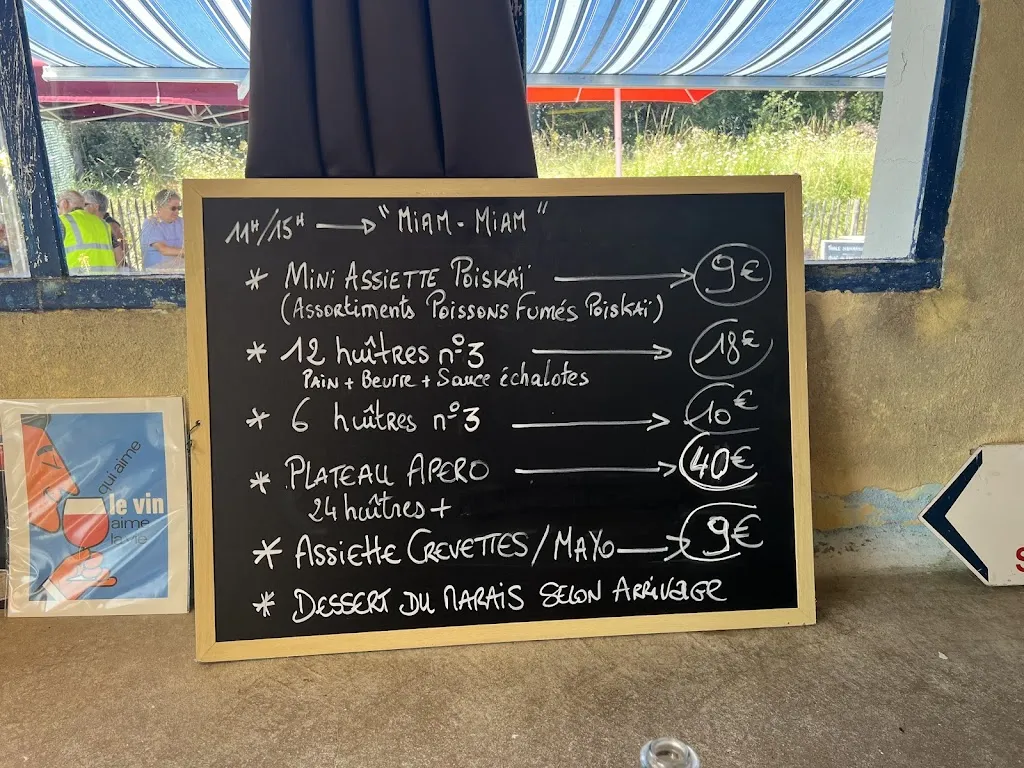 11H/15H → "MiAM - MiAM"
* MiNi ASSiETTE POiSKAÏ → 9€
(Assortiments Poissons Fumés Poiskaï)
* 12 huîtres n°3 → 18€
PAiN + BEURRE + Sauce échalotes
* 6 huîtres n°3 → 10€
* PLATEAU APERO → 40€
24 huîtres +
* ASSiEttE CREVETTES / MAYO → 9€
* DESSERT DU MARAiS SELON ARRiVAGE
qui aime
le vin
aime
la vie
S